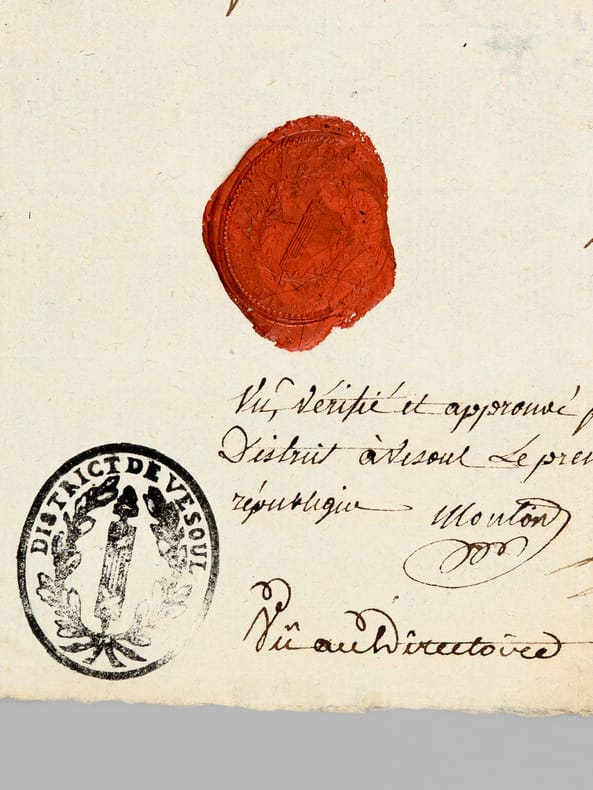 Vu, vérifié et approuvé p
District à Vesoul Le pre
république Mouton
DISTRICT DE VESOUL
Vû au Directoire